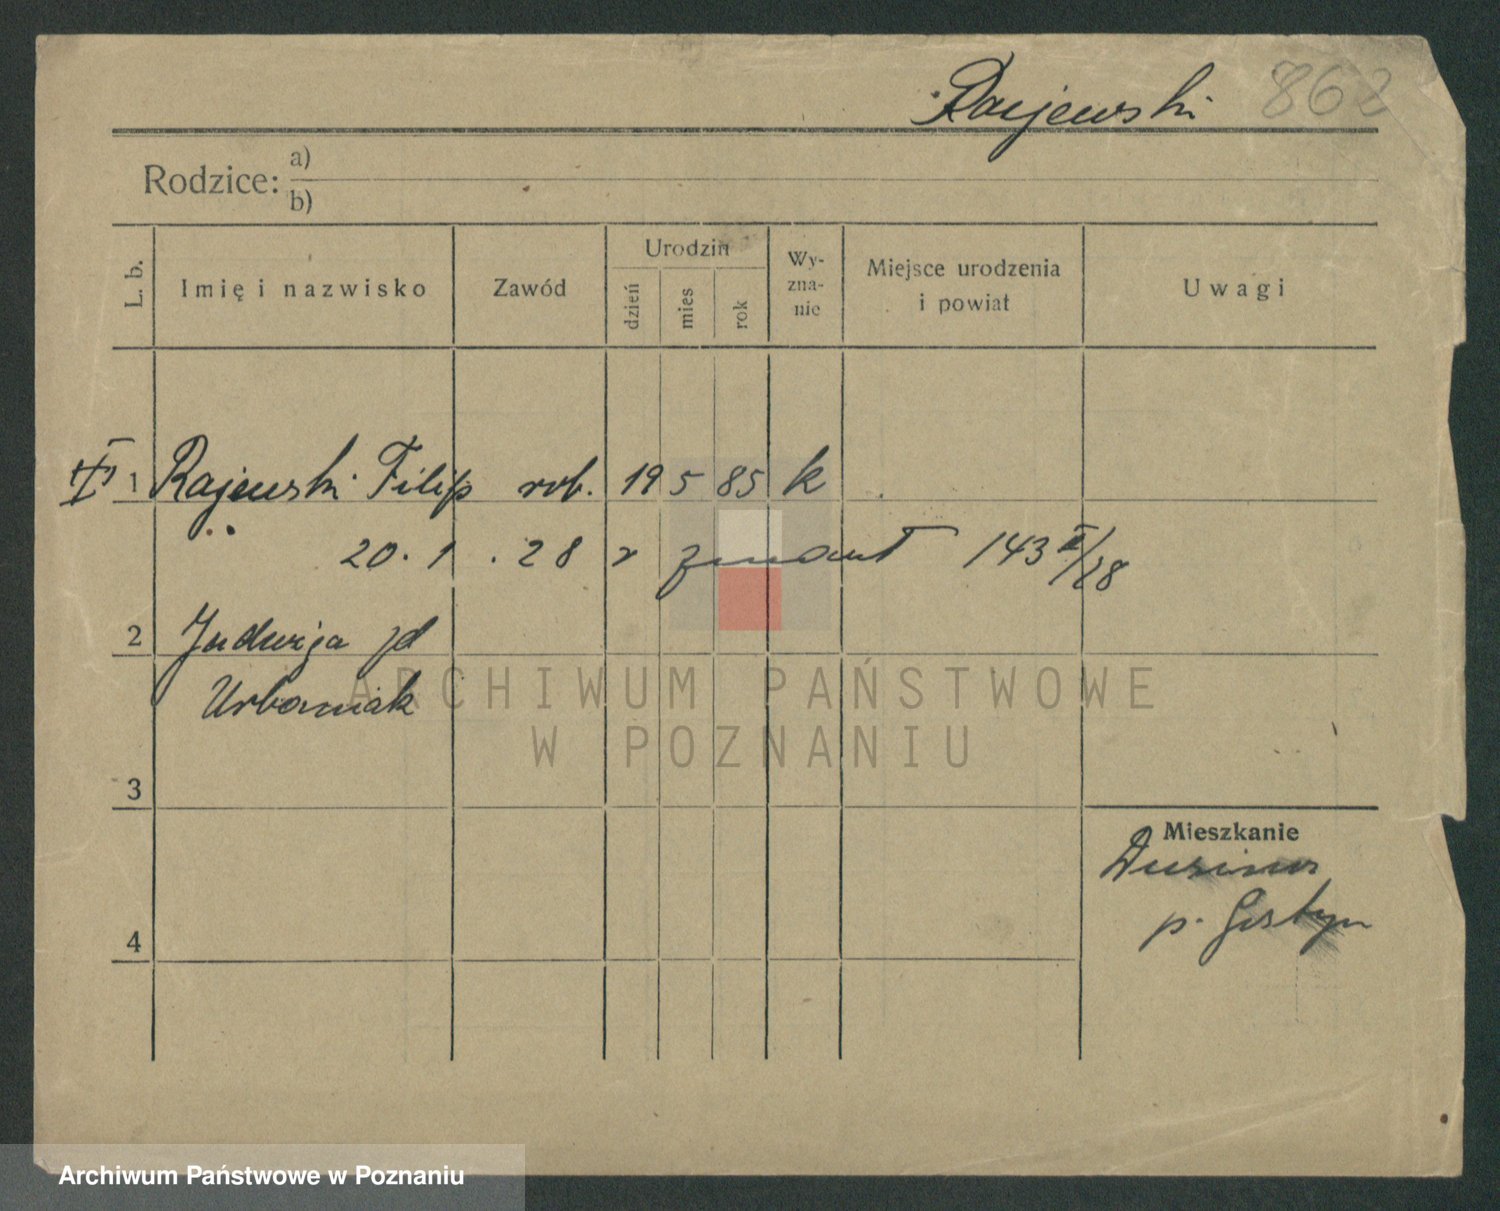 Rajewski 862
Rodzice: a)
b)
L. b. Imię i nazwisko Zawód Urodzin dzień mies rok Wyznanie Miejsce urodzenia i powiat Uwagi
1 Rajewski Filip rob. 19 5 85 k
20. 1. 28 r zmarł 143 II/28
2 Jadwiga zd
Urbaniak
ARCHIWUM PAŃSTWOWE
W POZNANIU
3
Mieszkanie
p. Gostyn
4
Archiwum Państwowe w Poznaniu